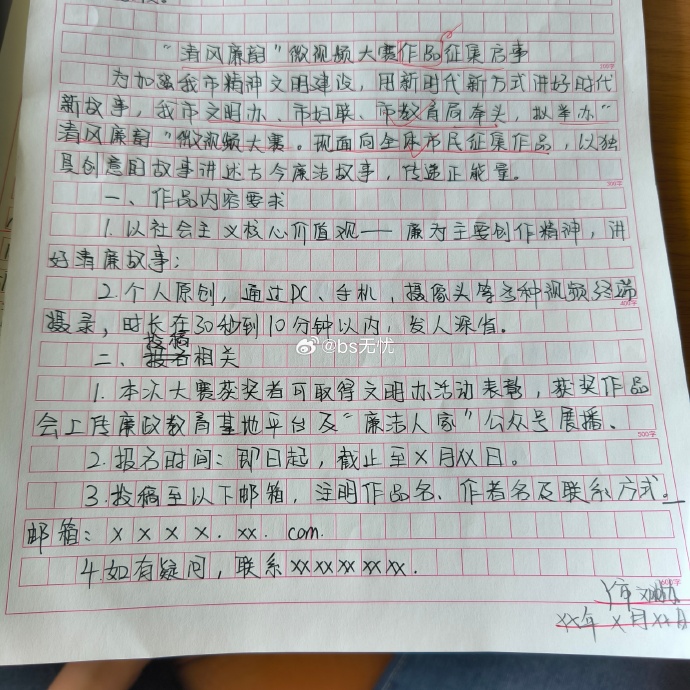 "清风廉韵"微视频大赛作品征集启事
100字
为加强我市精神文明建设，用新时代新方式讲好时代
新故事，我市文明办、市妇联、市教育局牵头，拟举办"
清风廉韵"微视频大赛。现面向全体市民征集作品，以独
具创意的故事讲述古今廉洁故事，传递正能量。
300字
一、作品内容要求
1.以社会主义核心价值观——廉为主要创作精神，讲
好清廉故事；
2.个人原创，通过PC、手机，摄像头等各种视频终端
400字
摄录，时长在30秒到10分钟以内，发人深省。
投稿
二、报名相关
@bs无忧
1.本次大赛获奖者可取得文明办活动表彰，获奖作品
会上传廉政教育基地平台及"廉洁人家"公众号展播、
500字
2.报名时间：即日起，截止至X月XX日。
3.投稿至以下邮箱，注明作品名、作者名及联系方式。
邮箱：xxxx.xx.com.
4.如有疑问，联系xxxxxx.
600字
市文明办
xx年x月xx日